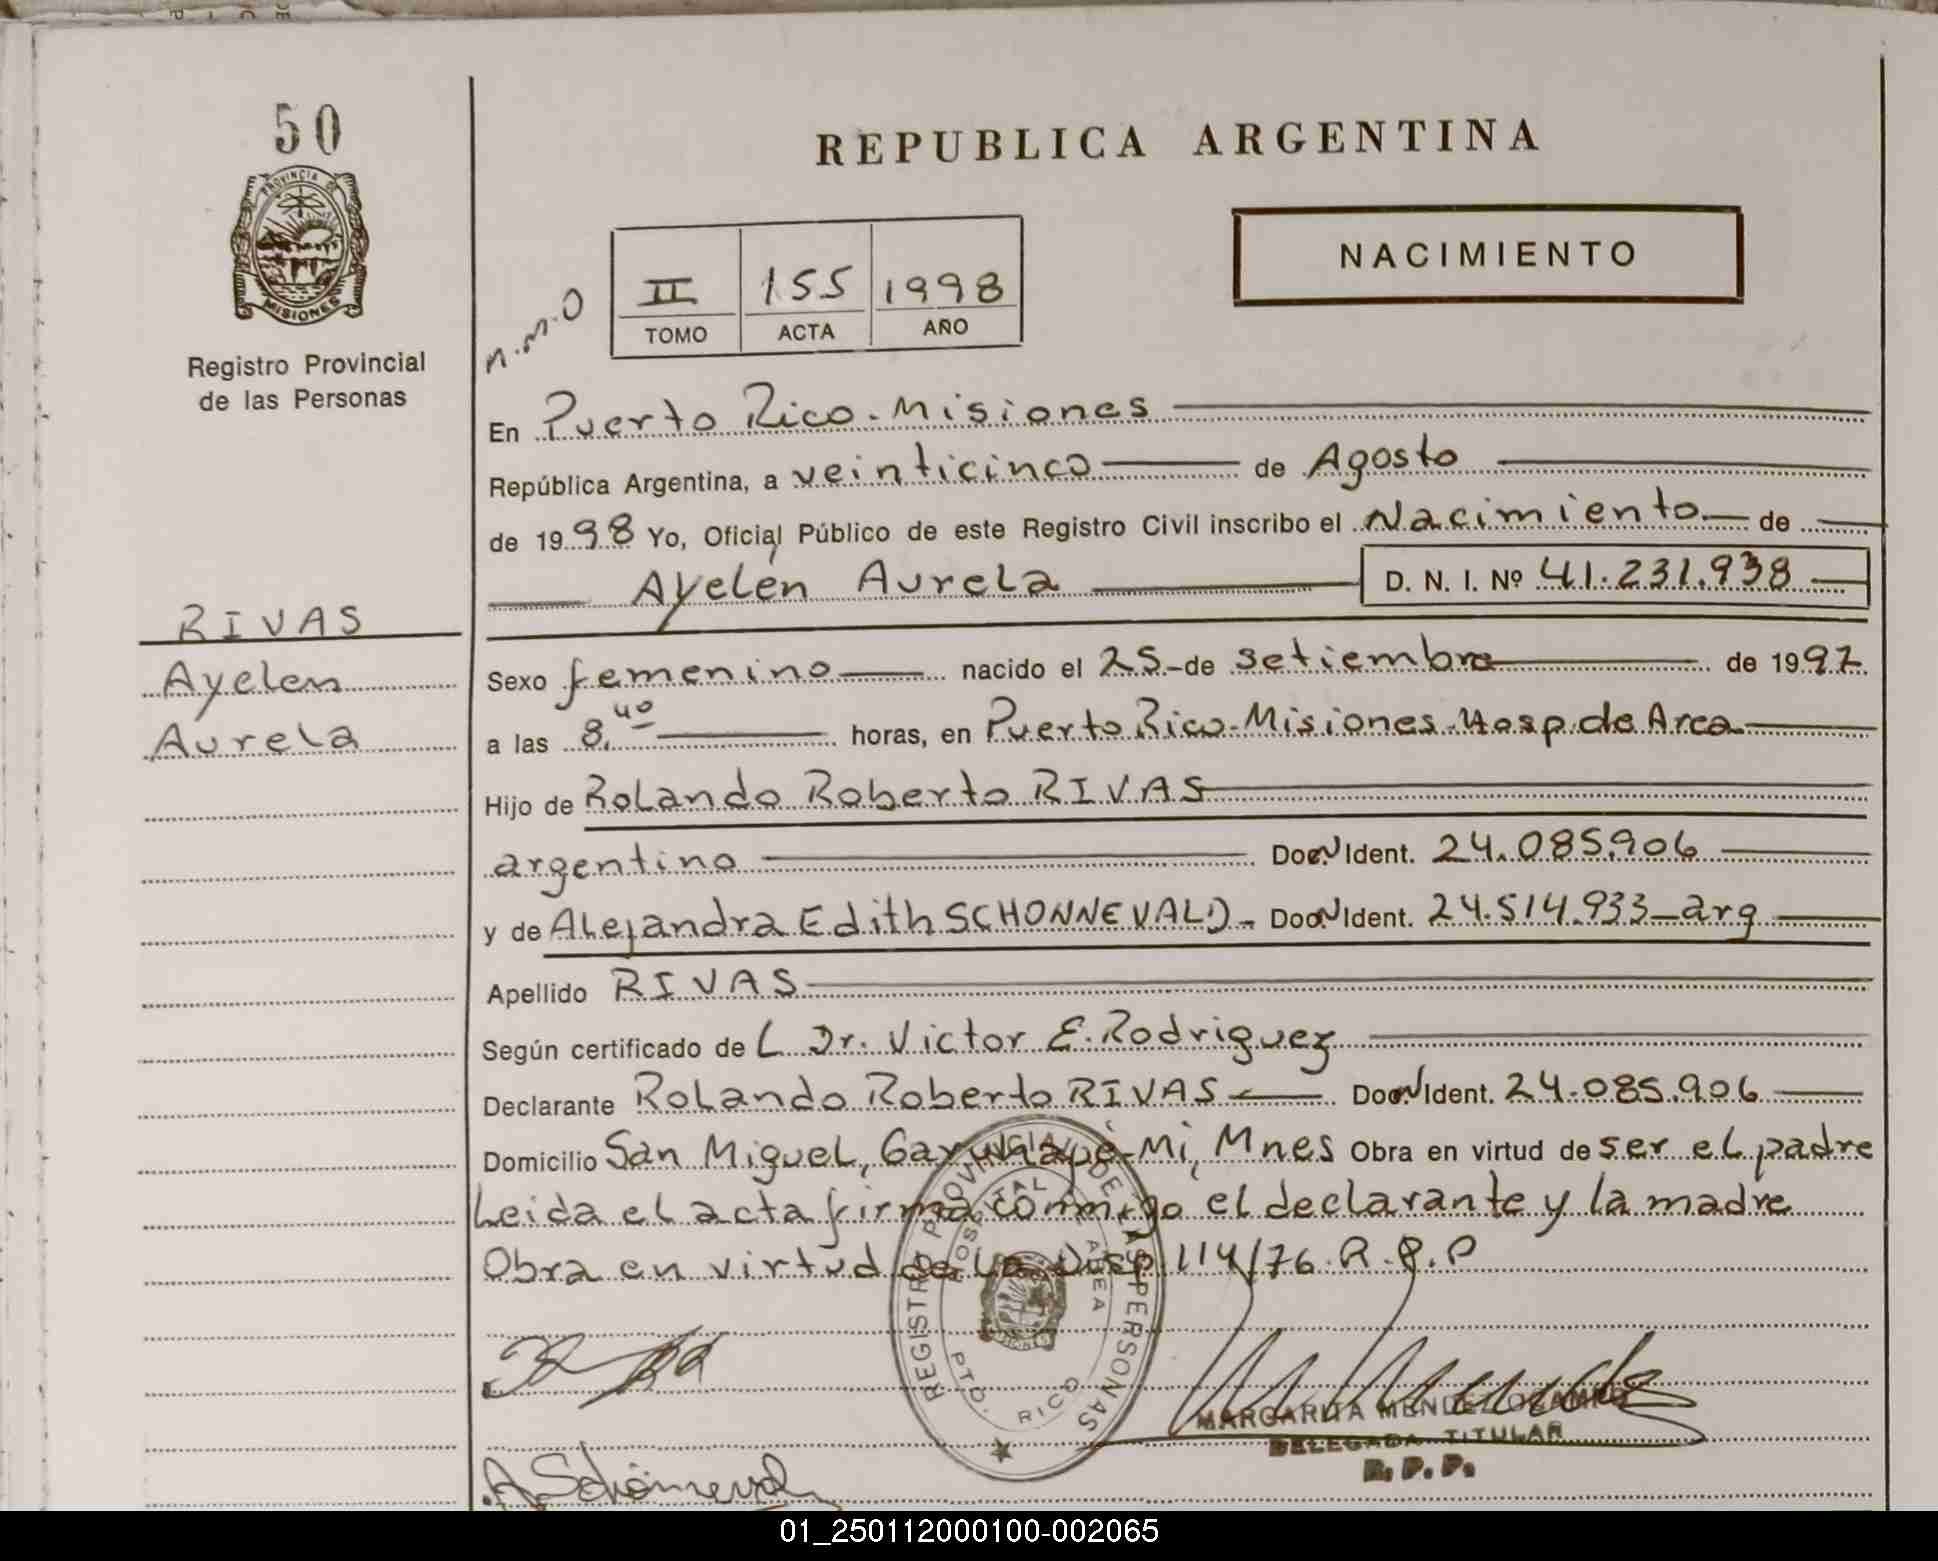 50
PROVINCIA DE
MISIONES
Registro Provincial
de las Personas
REPUBLICA ARGENTINA
NACIMIENTO
n.m.o
II 155 1998
TOMO ACTA AÑO
En Puerto Rico-Misiones
República Argentina, a veinticinco de Agosto
de 1998 Yo, Oficial Público de este Registro Civil inscribo el Nacimiento de
Ayelén Aurela D. N. I. Nº 41.231.938
RIVAS
Ayelen
Aurela
Sexo femenino nacido el 25 de setiembre de 1997
a las 8,40 horas, en Puerto Rico-Misiones-Hosp. de Area
Hijo de Rolando Roberto RIVAS
argentino Doc. Ident. 24.085.906
y de Alejandra Edith SCHONNEVALD- Doc. Ident. 24.514.933-arg
Apellido RIVAS
Según certificado de L Dr. Victor E. Rodriguez
Declarante Rolando Roberto RIVAS Doc. Ident. 24.085.906
Domicilio San Miguel, Garuhapé-Mi, Mnes Obra en virtud de ser el padre
Leida el acta firma conmigo el declarante y la madre
Obra en virtud de la Disp 114/76 R.P.P
REGISTRO PROVINCIAL DE LAS PERSONAS
HOSPITAL AREA
PTO. RICO
MARGARITA MENDEZ OCAMPO
DELEGADA TITULAR
R. P. P.
01_250112000100-002065